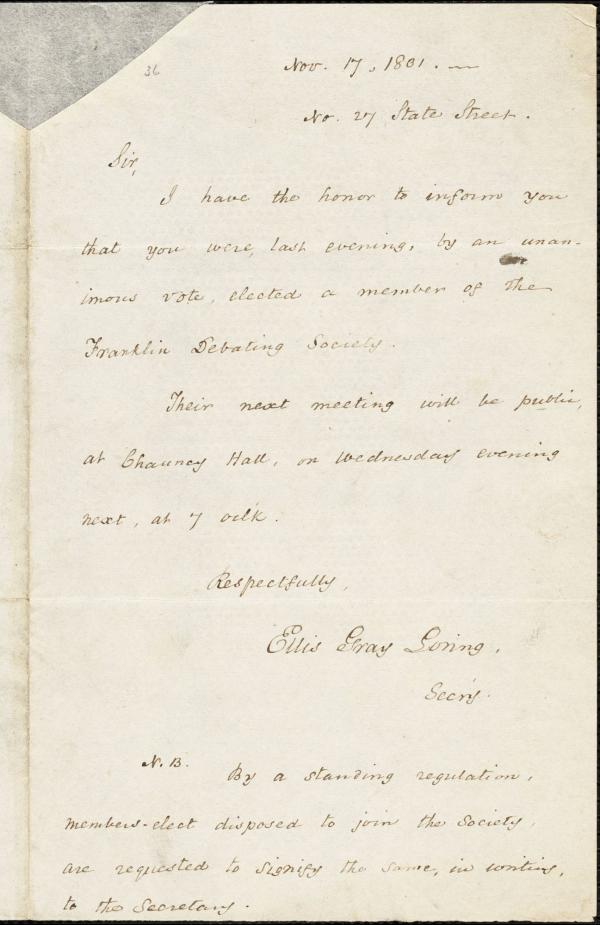 36
Nov. 17, 1831. —
No. 27 State Street.
Sir,
I have the honor to inform you
that you were, last evening, by an unan-
imous vote, elected a member of the
Franklin Debating Society.
Their next meeting will be public,
at Chauncy Hall, on Wednesday evening
next, at 7 oclk.
Respectfully,
Ellis Gray Loring,
Secry.
N.B. By a standing regulation,
members-elect disposed to join the Society,
are requested to signify the same, in writing,
to the Secretary.